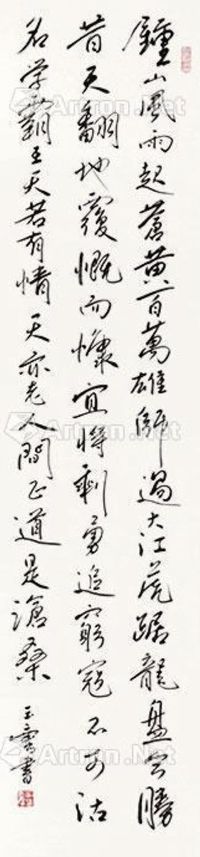 鍾山風雨起蒼黃百萬雄師過大江虎踞龍盤今勝
昔天翻地覆慨而慷宜將剩勇追窮寇不可沽
名学霸王天若有情天亦老人間正道是滄桑
書
Artron.Net